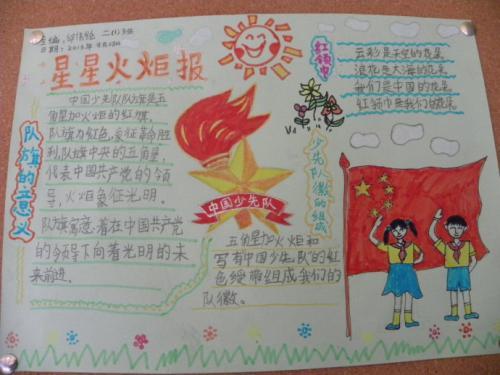 主编
二(1)班
日期:2013年9月13日
星星火炬报
队旗的意义
中国少先队队旗是五
角星加火炬的红旗,
队旗为红色,象征革命胜
利,队旗中央的五角星
代表中国共产党的领
导,火炬象征光明。
队旗寓意着在中国共产党
的领导下向着光明的未
来前进.
中国少先队
红领巾
云彩是天空的花朵
浪花是大海的花朵
我们是中国的花朵
红领巾是我们的花朵
少先队徽的组成
五角星加火炬和
写有中国少先队的红
色绶带组成我们的
队徽。